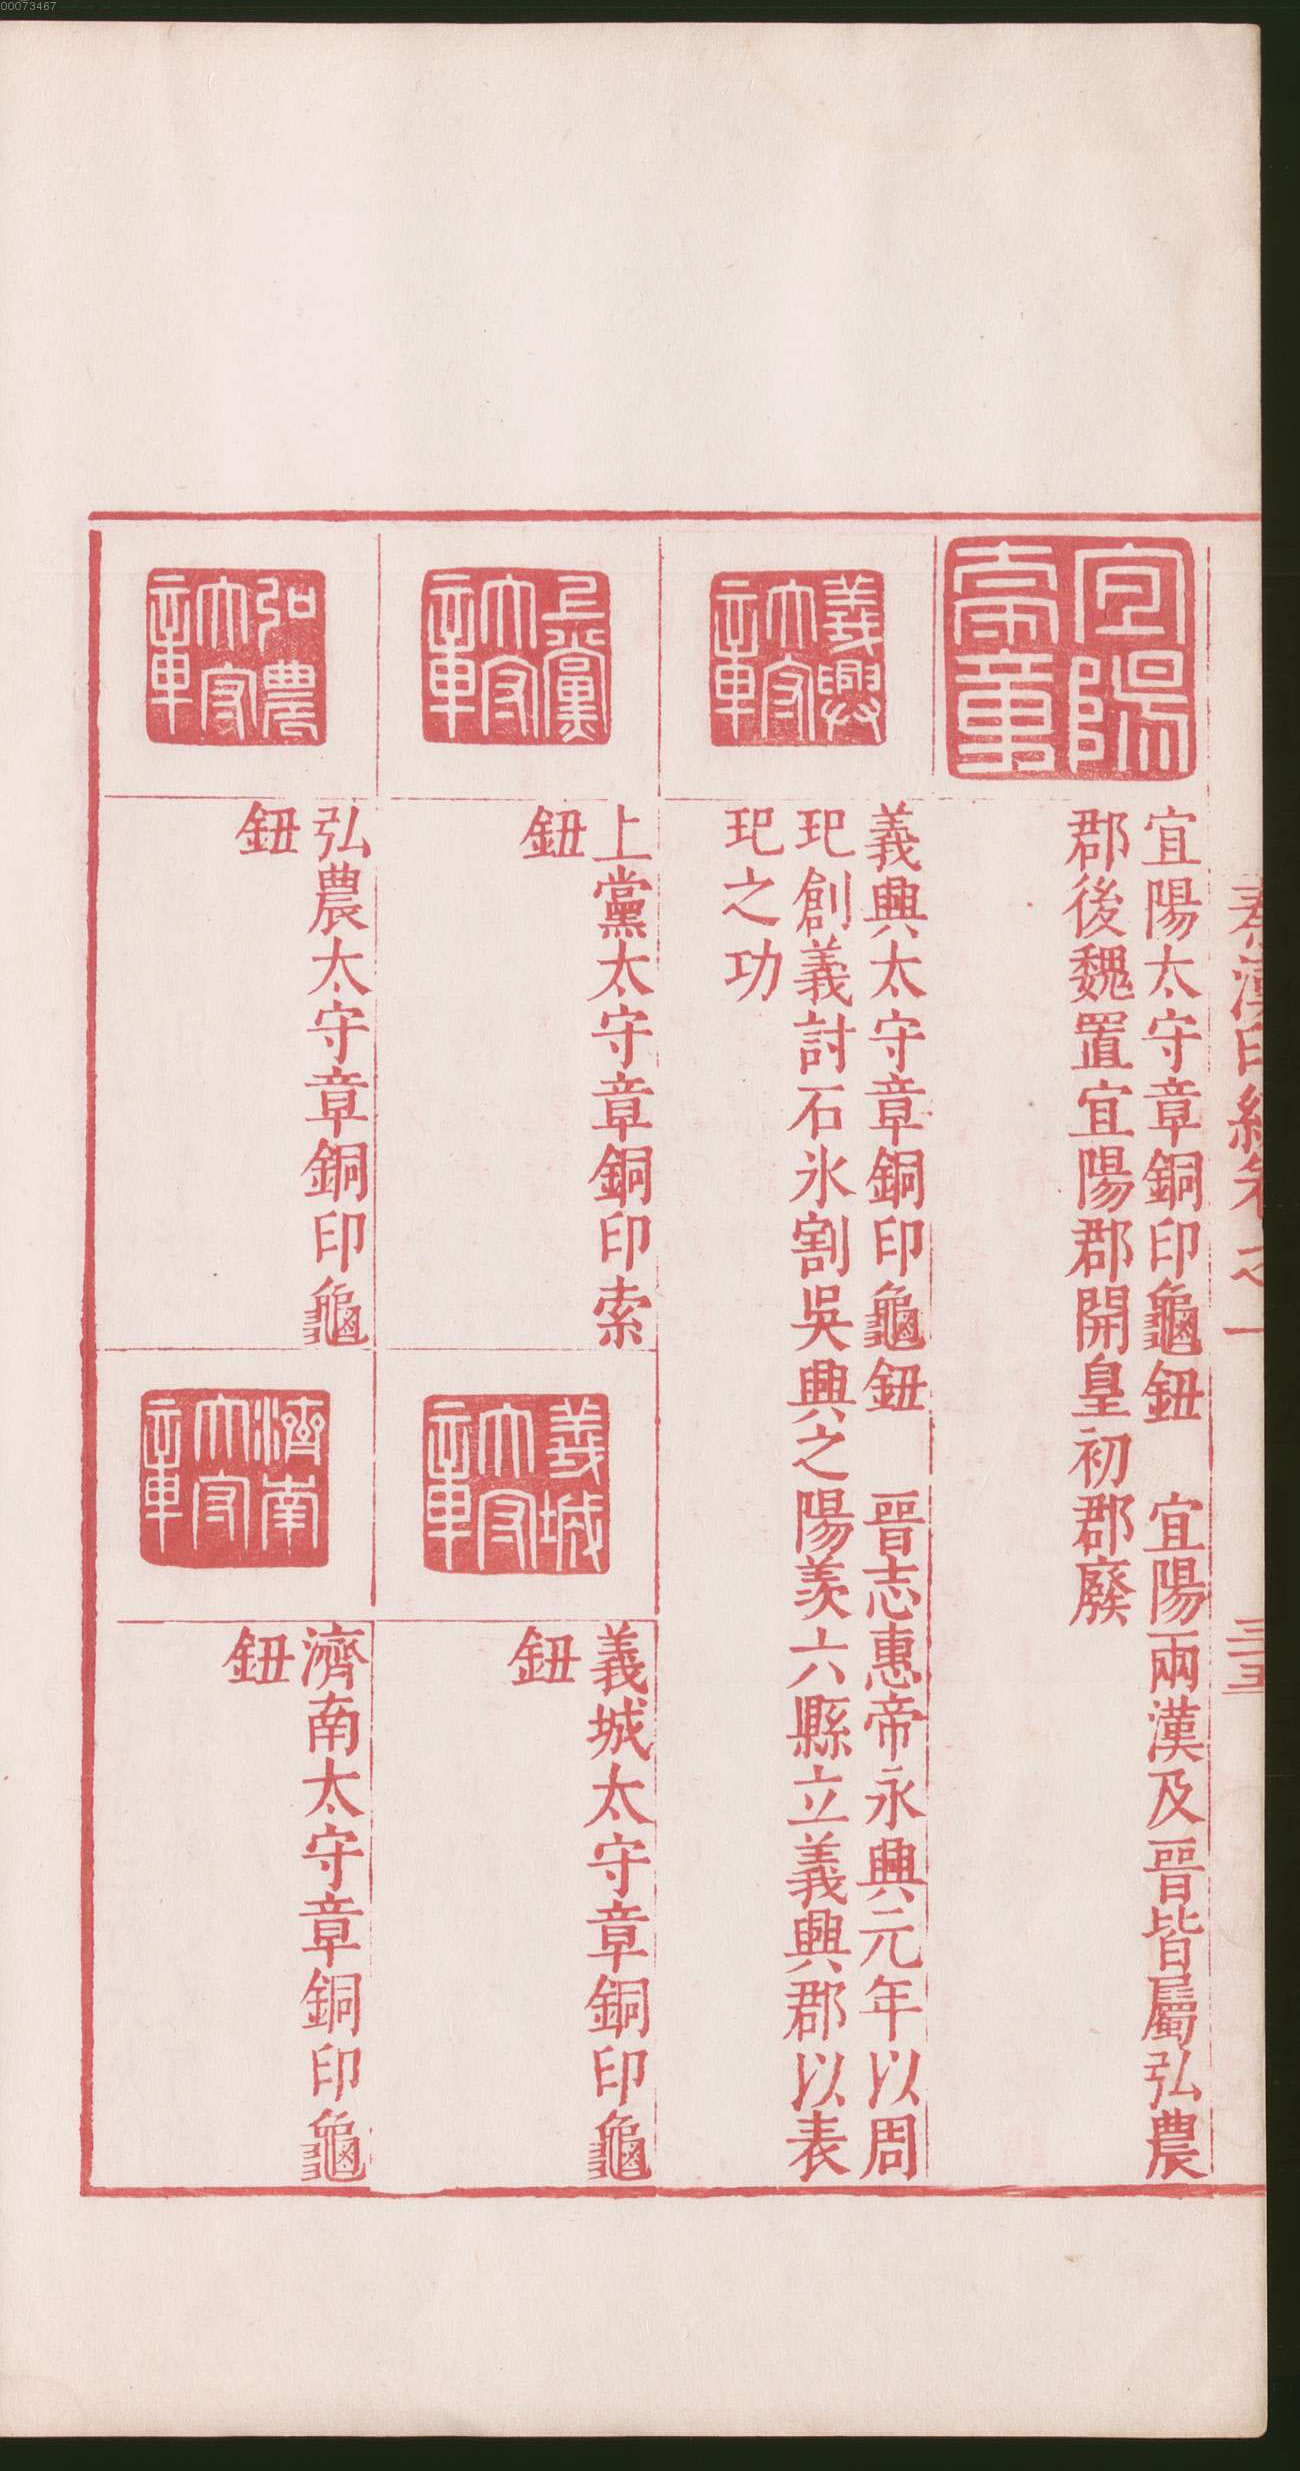 00073467
秦漢印統卷之一
宜陽
章
宜陽太守章銅印龜鈕　宜陽兩漢及晉皆屬弘農
郡後魏置宜陽郡開皇初郡廢
義興
大守
章
義興太守章銅印龜鈕　晉志惠帝永興元年以周
玘創義討石氷割吳興之陽羨六縣立義興郡以表
玘之功
上黨
大守
章
上黨太守章銅印索
鈕
義城
大守
章
義城太守章銅印龜
鈕
弘農
大守
章
弘農太守章銅印龜
鈕
濟南
大守
章
濟南太守章銅印龜
鈕